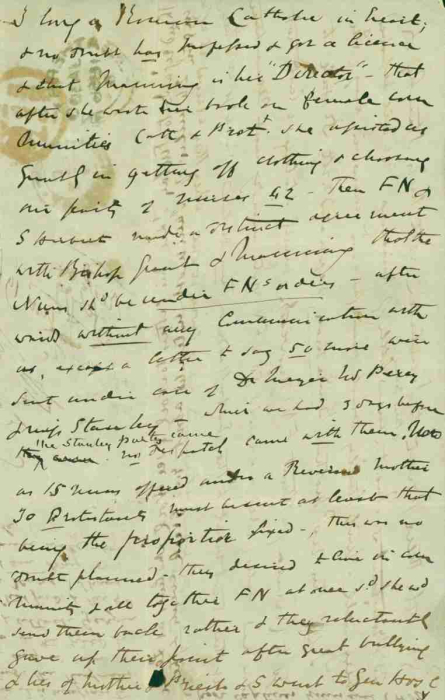 I long a Roman Catholic in heart;
& no doubt has professed & got a licence
& that Manning is her "Director" - that
after she wrote her book on female com
munities Cath & Prot. she assisted us
greatly in getting off clothing & choosing
our party of nurses 42 - Then FN &
S Herbert made a distinct agreement
with Bishop Grant & Manning that the
Nuns shd be under FNs orders - after
which without any Communication with
us, except a letter to say 50 more were
sent under care of Dr Meyer W Percy
& Miss Stanley which we had 3 days before
"the Stanley party" came
no Hospital came with them. Now
as 15 nuns offered under a Reverend Mother
30 Protestants must be sent at least that
being the proportion fixed - this was no
doubt planned - they desired to live in com
munity & all together FN at once sd she wd
send them back rather & they reluctantly
gave up their point after great bullying
& lies of Mother & Priests & S went to Gen Hos